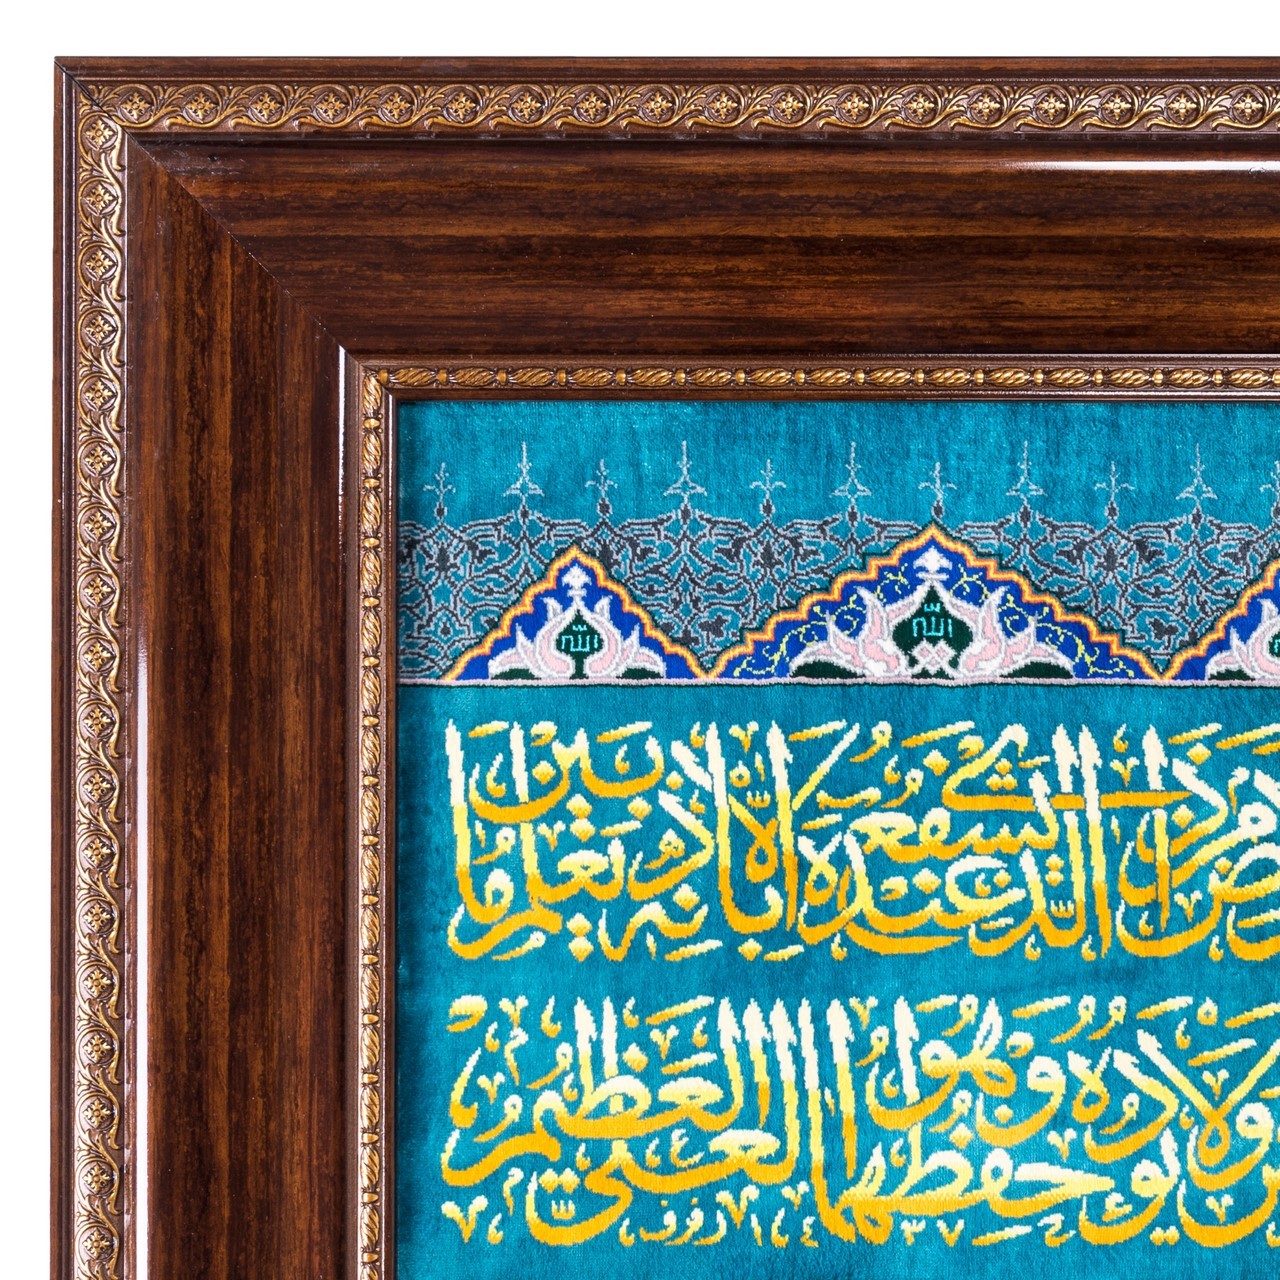 الله الله
من ذا الذي يشفع عنده إلا بإذنه يعلم ما بين
ولا يؤده حفظهما وهو العلي العظيم